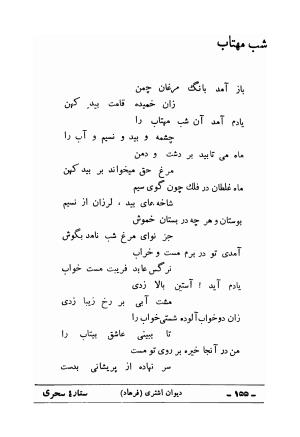 شب مهتاب
باز آمد بانگ مرغان چمن
زان خمیده قامت بید کهن
یادم آمد آن شب مهتاب را
چشمه و بید و نسیم و آب را
ماه می تابید بر دشت و دمن
مرغ حق میخواند بر بید کهن
ماه غلطان در فلک چون گوی سیم
شاخه های بید ، لرزان از نسیم
بوستان و هر چه در بستان خموش
جز نوای مرغ شب نامد بگوش
آمدی تو در برم مست و خراب
نرگس عابد فریبت مست خواب
یادم آید ! آستین بالا زدی
مشت آبی بر رخ زیبا زدی
زان دو خواب آلوده شستی خواب را
تا ببینی عاشق بیتاب را
من در آنجا خیره بر روی تو مست
سر نهاده از پریشانی بدست
ـ ۱۵۵ ـ دیوان اشتری (فرهاد) ستارهٔ سحری